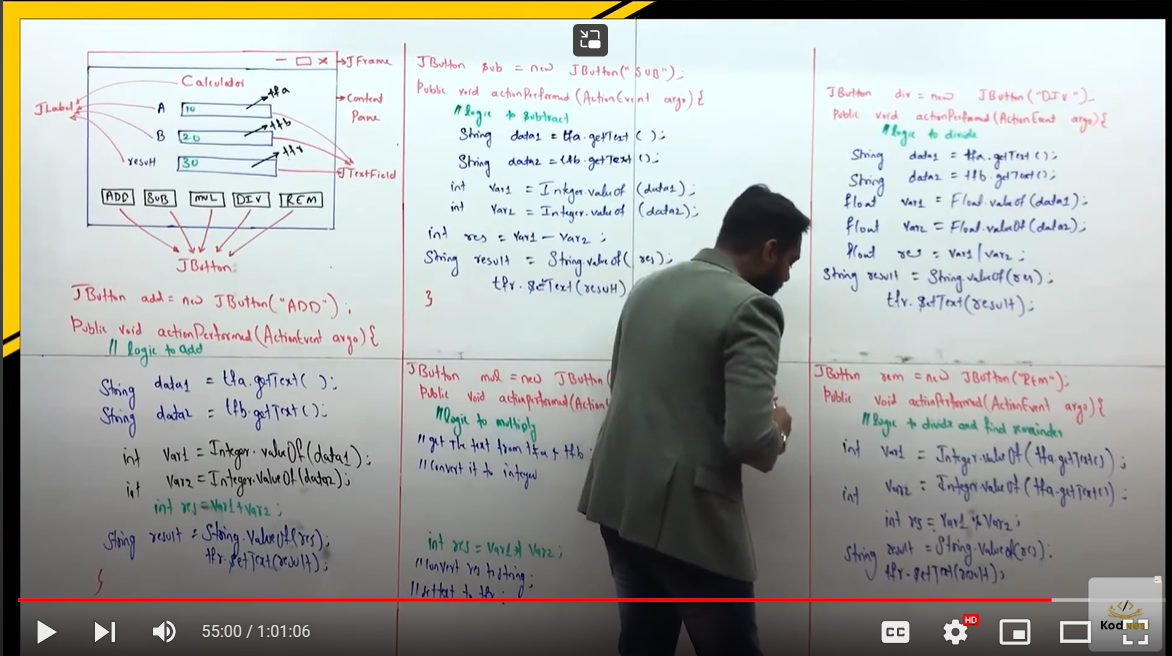 JFrame
Calculator
tfa
JLabel
A
10
Content
Pane
tfb
B
20
tfr
result
30
JTextField
ADD
SUB
MUL
DIV
REM
JButton
JButton add = new JButton("ADD");
Public void actionPerformed(ActionEvent argo){
// logic to add
String data1 = tfa.getText( );
String data2 = tfb.getText();
int var1 = Integer.valueOf(data1);
int var2 = Integer.valueOf(data2);
int res = var1+var2;
String result = String.valueOf(res);
tfr.setText(result);
}
JButton sub = new JButton("SUB");
Public void actionPerformed(ActionEvent argo){
// logic to subtract
String data1 = tfa.getText( );
String data2 = tfb.getText();
int var1 = Integer.value of (data1);
int var2 = Integer.value of (data2);
int res = var1 - var2 ;
String result = String.value of( res);
tfr.setText(result)
}
JButton mul = new JButton(
Public void actionperformed(Action
// logic to multiply
// get the text from tfa & tfb
// Convert it to integer
int res = var1 * var2;
// Convert res to string;
// settext to tfr ;
JButton div = new JButton("DIV");
Public void actionPerformed(ActionEvent argo){
// logic to divide
String data1 = tfa.getText();
String data2 = tfb.getText();
float var1 = Float.valueOf(data1);
float var2 = Float.valueOf(data2);
float res = var1/var2;
String result = String.valueOf(res);
tfr.setText(result);
JButton rem = new JButton("REM");
Public void actionPerformed(ActionEvent argo){
// logic to divide and find remainder
int var1 = Integer.valueOf (tfa.getText());
int var2 = Integer.value of (tfa.getText());
int res = var1 % var2;
String result = String.valueOf(res);
tfr.setText(result);
55:00 / 1:01:06
CC
HD